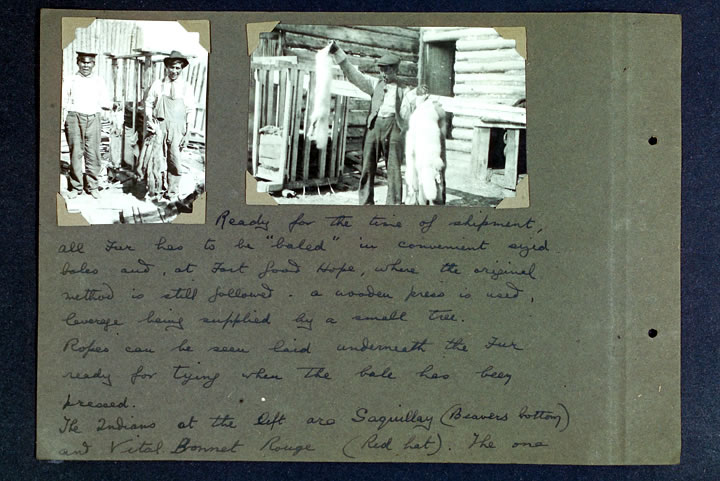 Ready for the time of shipment,
all Fur has to be "baled" in convenient sized
bales and, at Fort Good Hope, where the original
method is still followed. a wooden press is used,
leverage being supplied by a small tree.
Ropes can be seen laid underneath the Fur
ready for tying when the bale has been
pressed.
The Indians at the left are Saquillay (Beavers bottom)
and Vital Bonnet Rouge (Red hat). The one